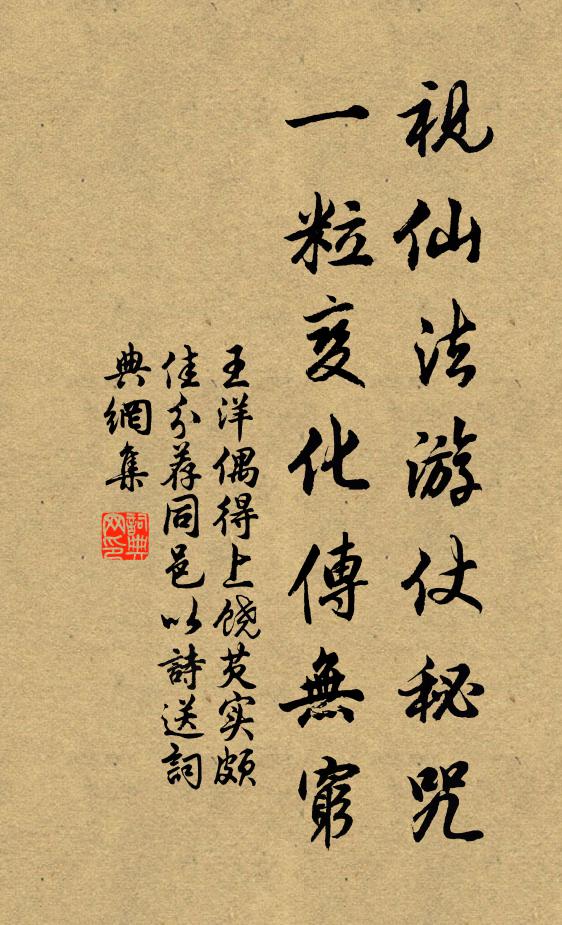 視仙法游仗秘咒
一粒变化傳無窮
王洋偶得上饶芡实颇
佳分荐同邑以詩送詞
典網集
詞典网印